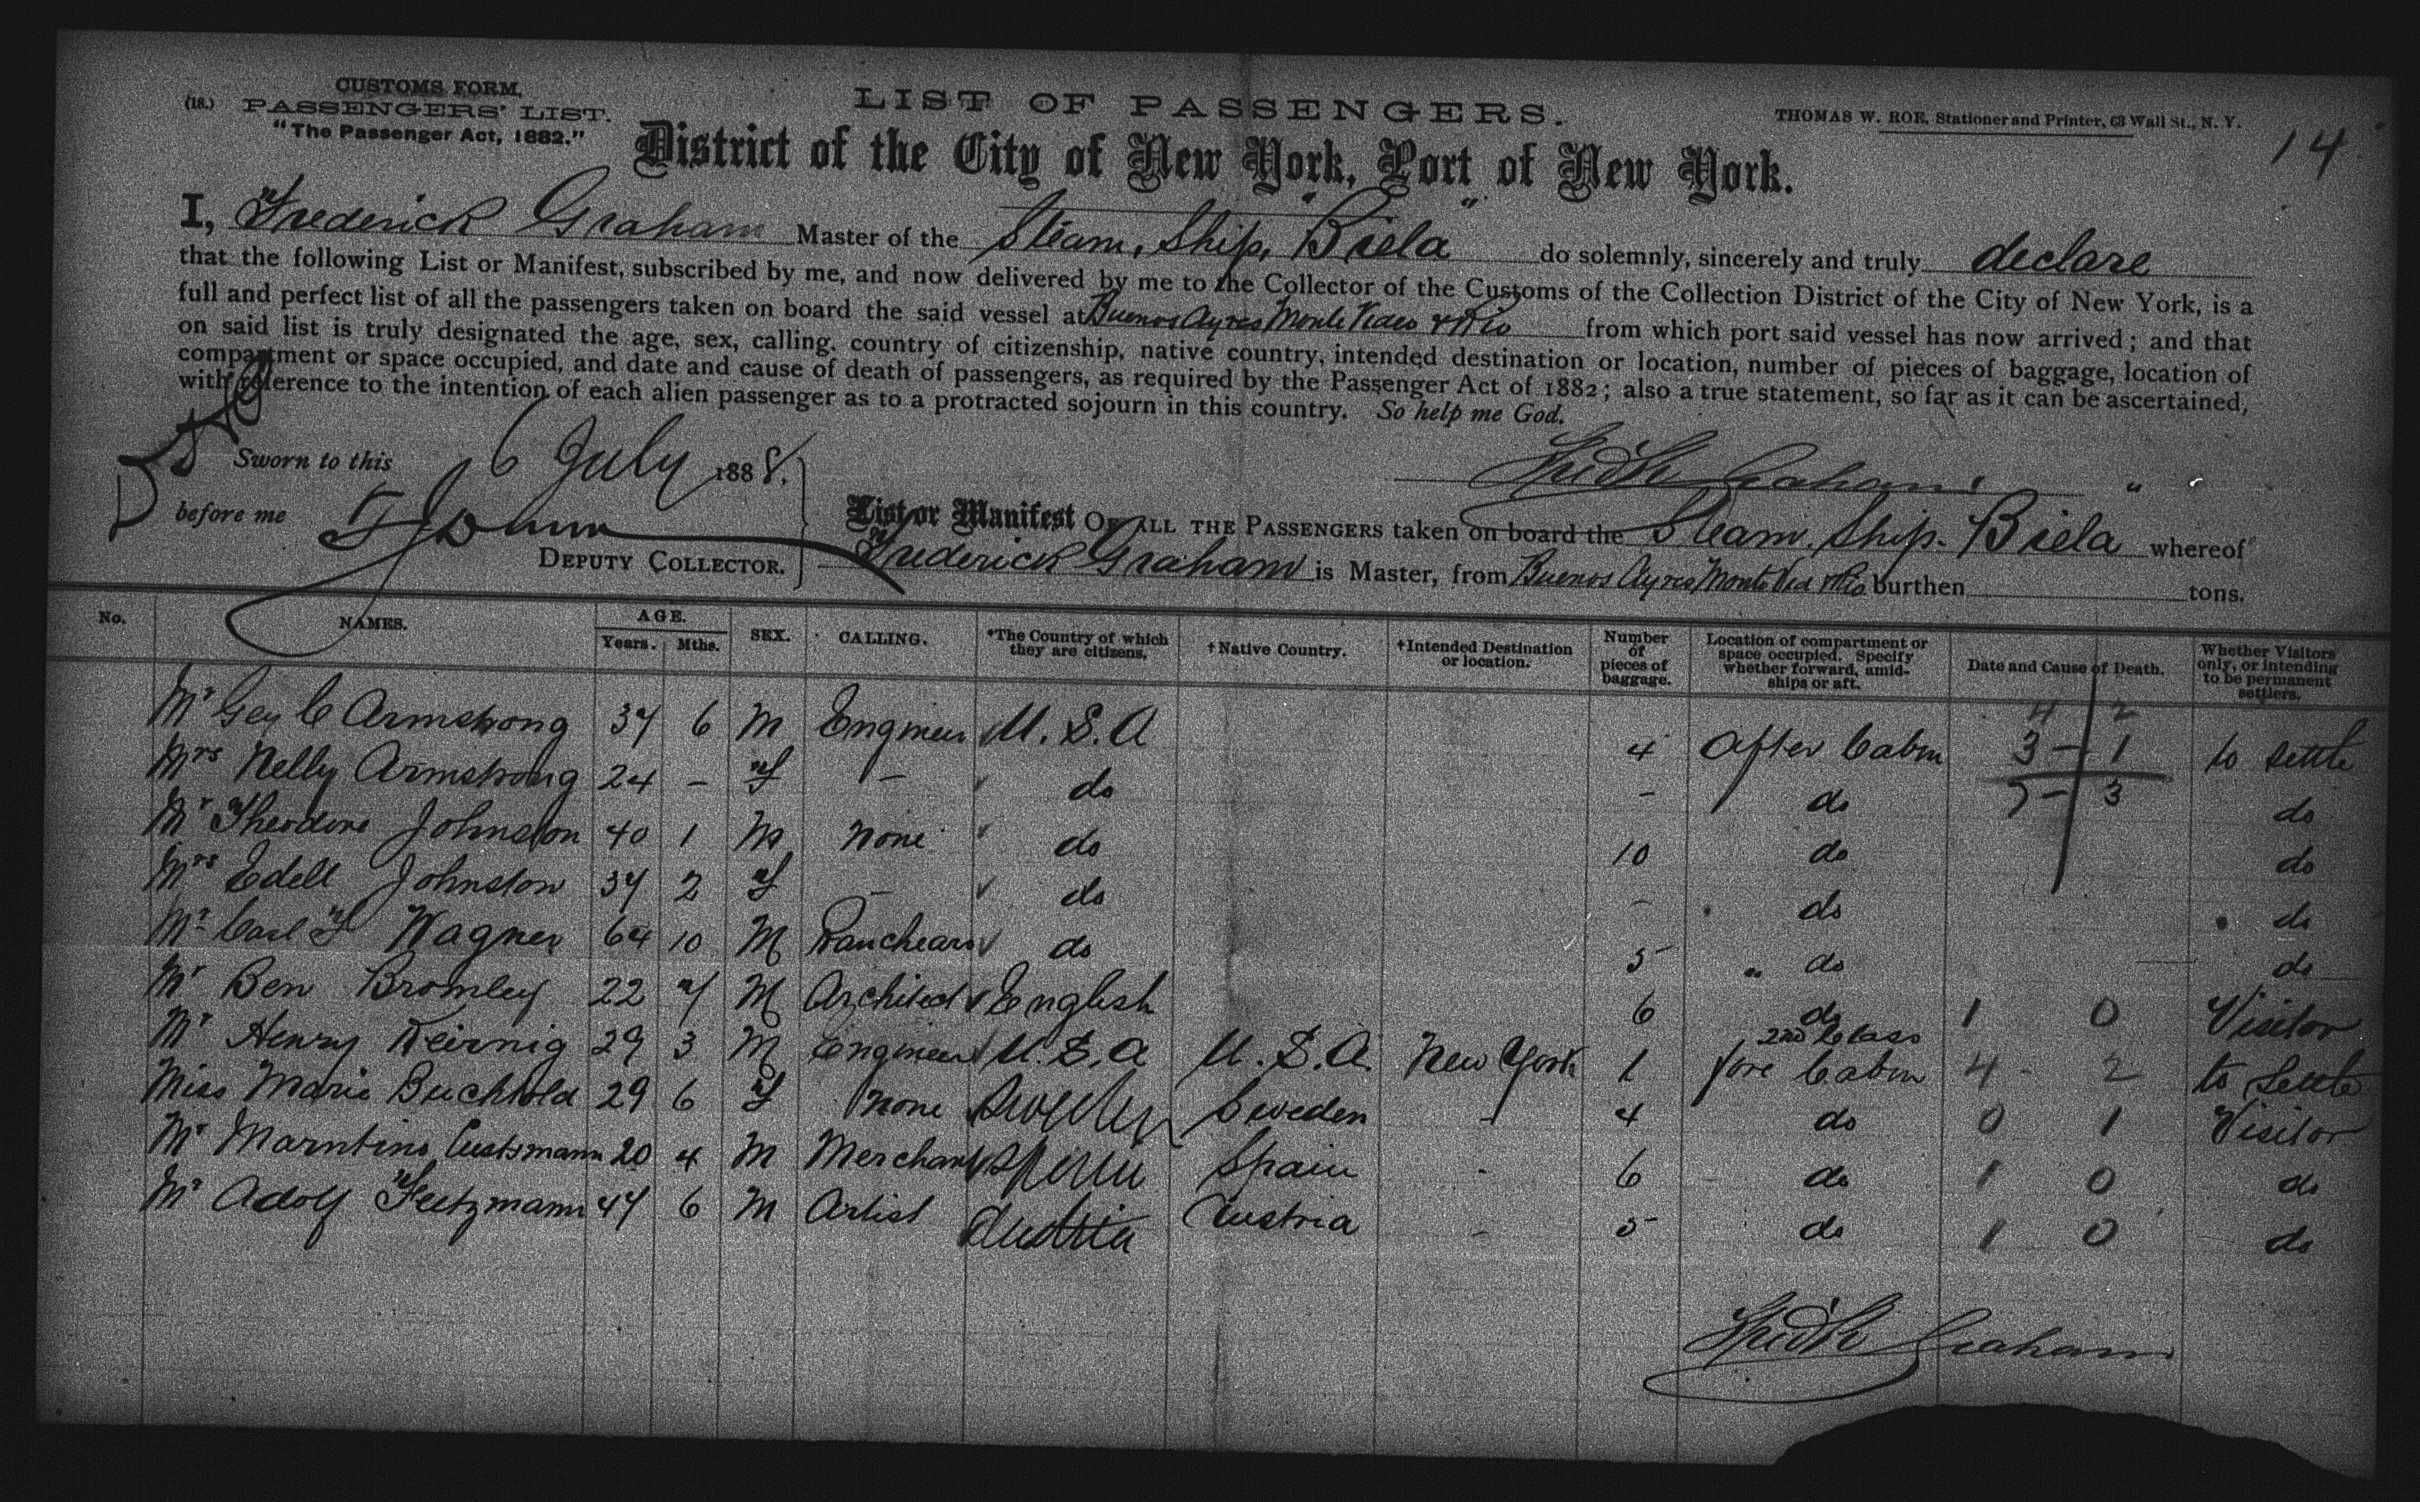 CUSTOMS FORM.
(18.) PASSENGERS' LIST.
"The Passenger Act, 1882."
LIST OF PASSENGERS.
THOMAS W. ROE, Stationer and Printer, 63 Wall St., N. Y.
14
District of the City of New York, Port of New York.
I, Frederick Graham Master of the Steam, Ship, "Biela" do solemnly, sincerely and truly declare
that the following List or Manifest, subscribed by me, and now delivered by me to the Collector of the Customs of the Collection District of the City of New York, is a
full and perfect list of all the passengers taken on board the said vessel at Buenos Ayres Monte Video & Rio from which port said vessel has now arrived; and that
on said list is truly designated the age, sex, calling, country of citizenship, native country, intended destination or location, number of pieces of baggage, location of
compartment or space occupied, and date and cause of death of passengers, as required by the Passenger Act of 1882; also a true statement, so far as it can be ascertained,
with reference to the intention of each alien passenger as to a protracted sojourn in this country. So help me God.
Sworn to this 6 July 1888.
Fredk Graham
before me
DEPUTY COLLECTOR.
List or Manifest OF ALL THE PASSENGERS taken on board the Steam. Ship. Biela whereof
Frederick Graham is Master, from Buenos Ayres Monte Vid & Rio burthen tons.
No. NAMES. AGE. Years. Mths. SEX. CALLING. *The Country of which they are citizens. †Native Country. †Intended Destination or location. Number of pieces of baggage. Location of compartment or space occupied. Specify whether forward, amidships or aft. Date and Cause of Death. Whether Visitors only, or intending to be permanent settlers.
4 2
Mr Geo C Armstrong 37 6 M Engineer U. S. A 4 After Cabin 3 - 1 to settle
Mrs Nelly Armstrong 24 - F - do - do 7 - 3 do
Mr Theodore Johnston 40 1 M none do 10 do do
Mrs Edell Johnston 37 2 F - do - do do
Mr Carl F Wagner 64 10 M do 5 " do do
Mr Ben Bromley 22 7 M Architect English 6 do 1 0 Visitor
2nd Class
Mr Henry Keirnig 29 3 M Engineer U. S. A U. S. A. New York 1 Fore Cabin 4 - 2 to Settle
Miss Marie Buchhold 29 6 F none Sweden Sweden - 4 do 0 1 Visitor
Mr Marntino Custsmann 20 4 M Merchant Spain Spain - 6 do 1 0 do
Mr Adolf Feetzmann 47 6 M Artist Austria Austria - 5 do 1 0 do
Fredk Graham